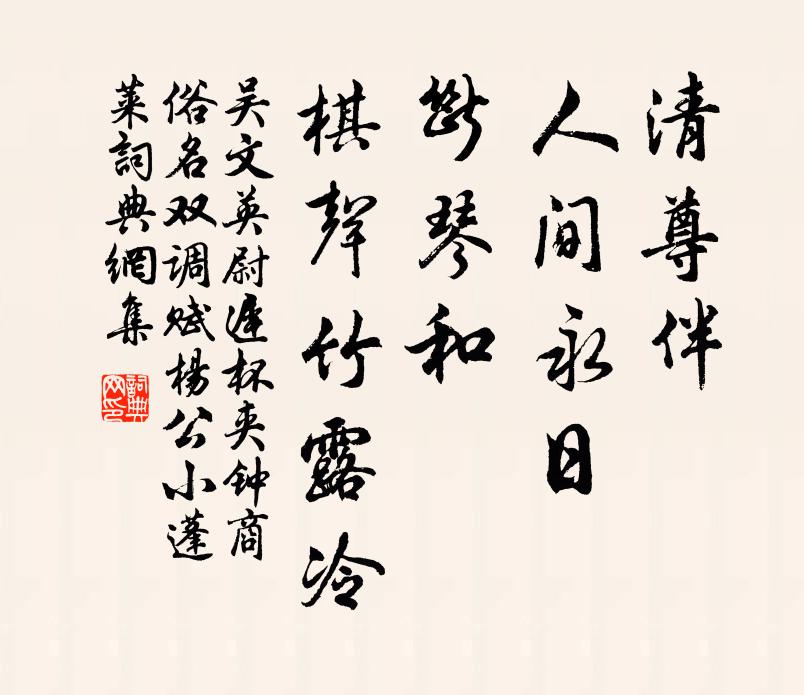 清尊伴
人间永日
断琴和
棋聲竹露冷
吴文英尉遲杯夹钟商
俗名双调赋楊公小蓬
萊詞典網集
詞典
网印